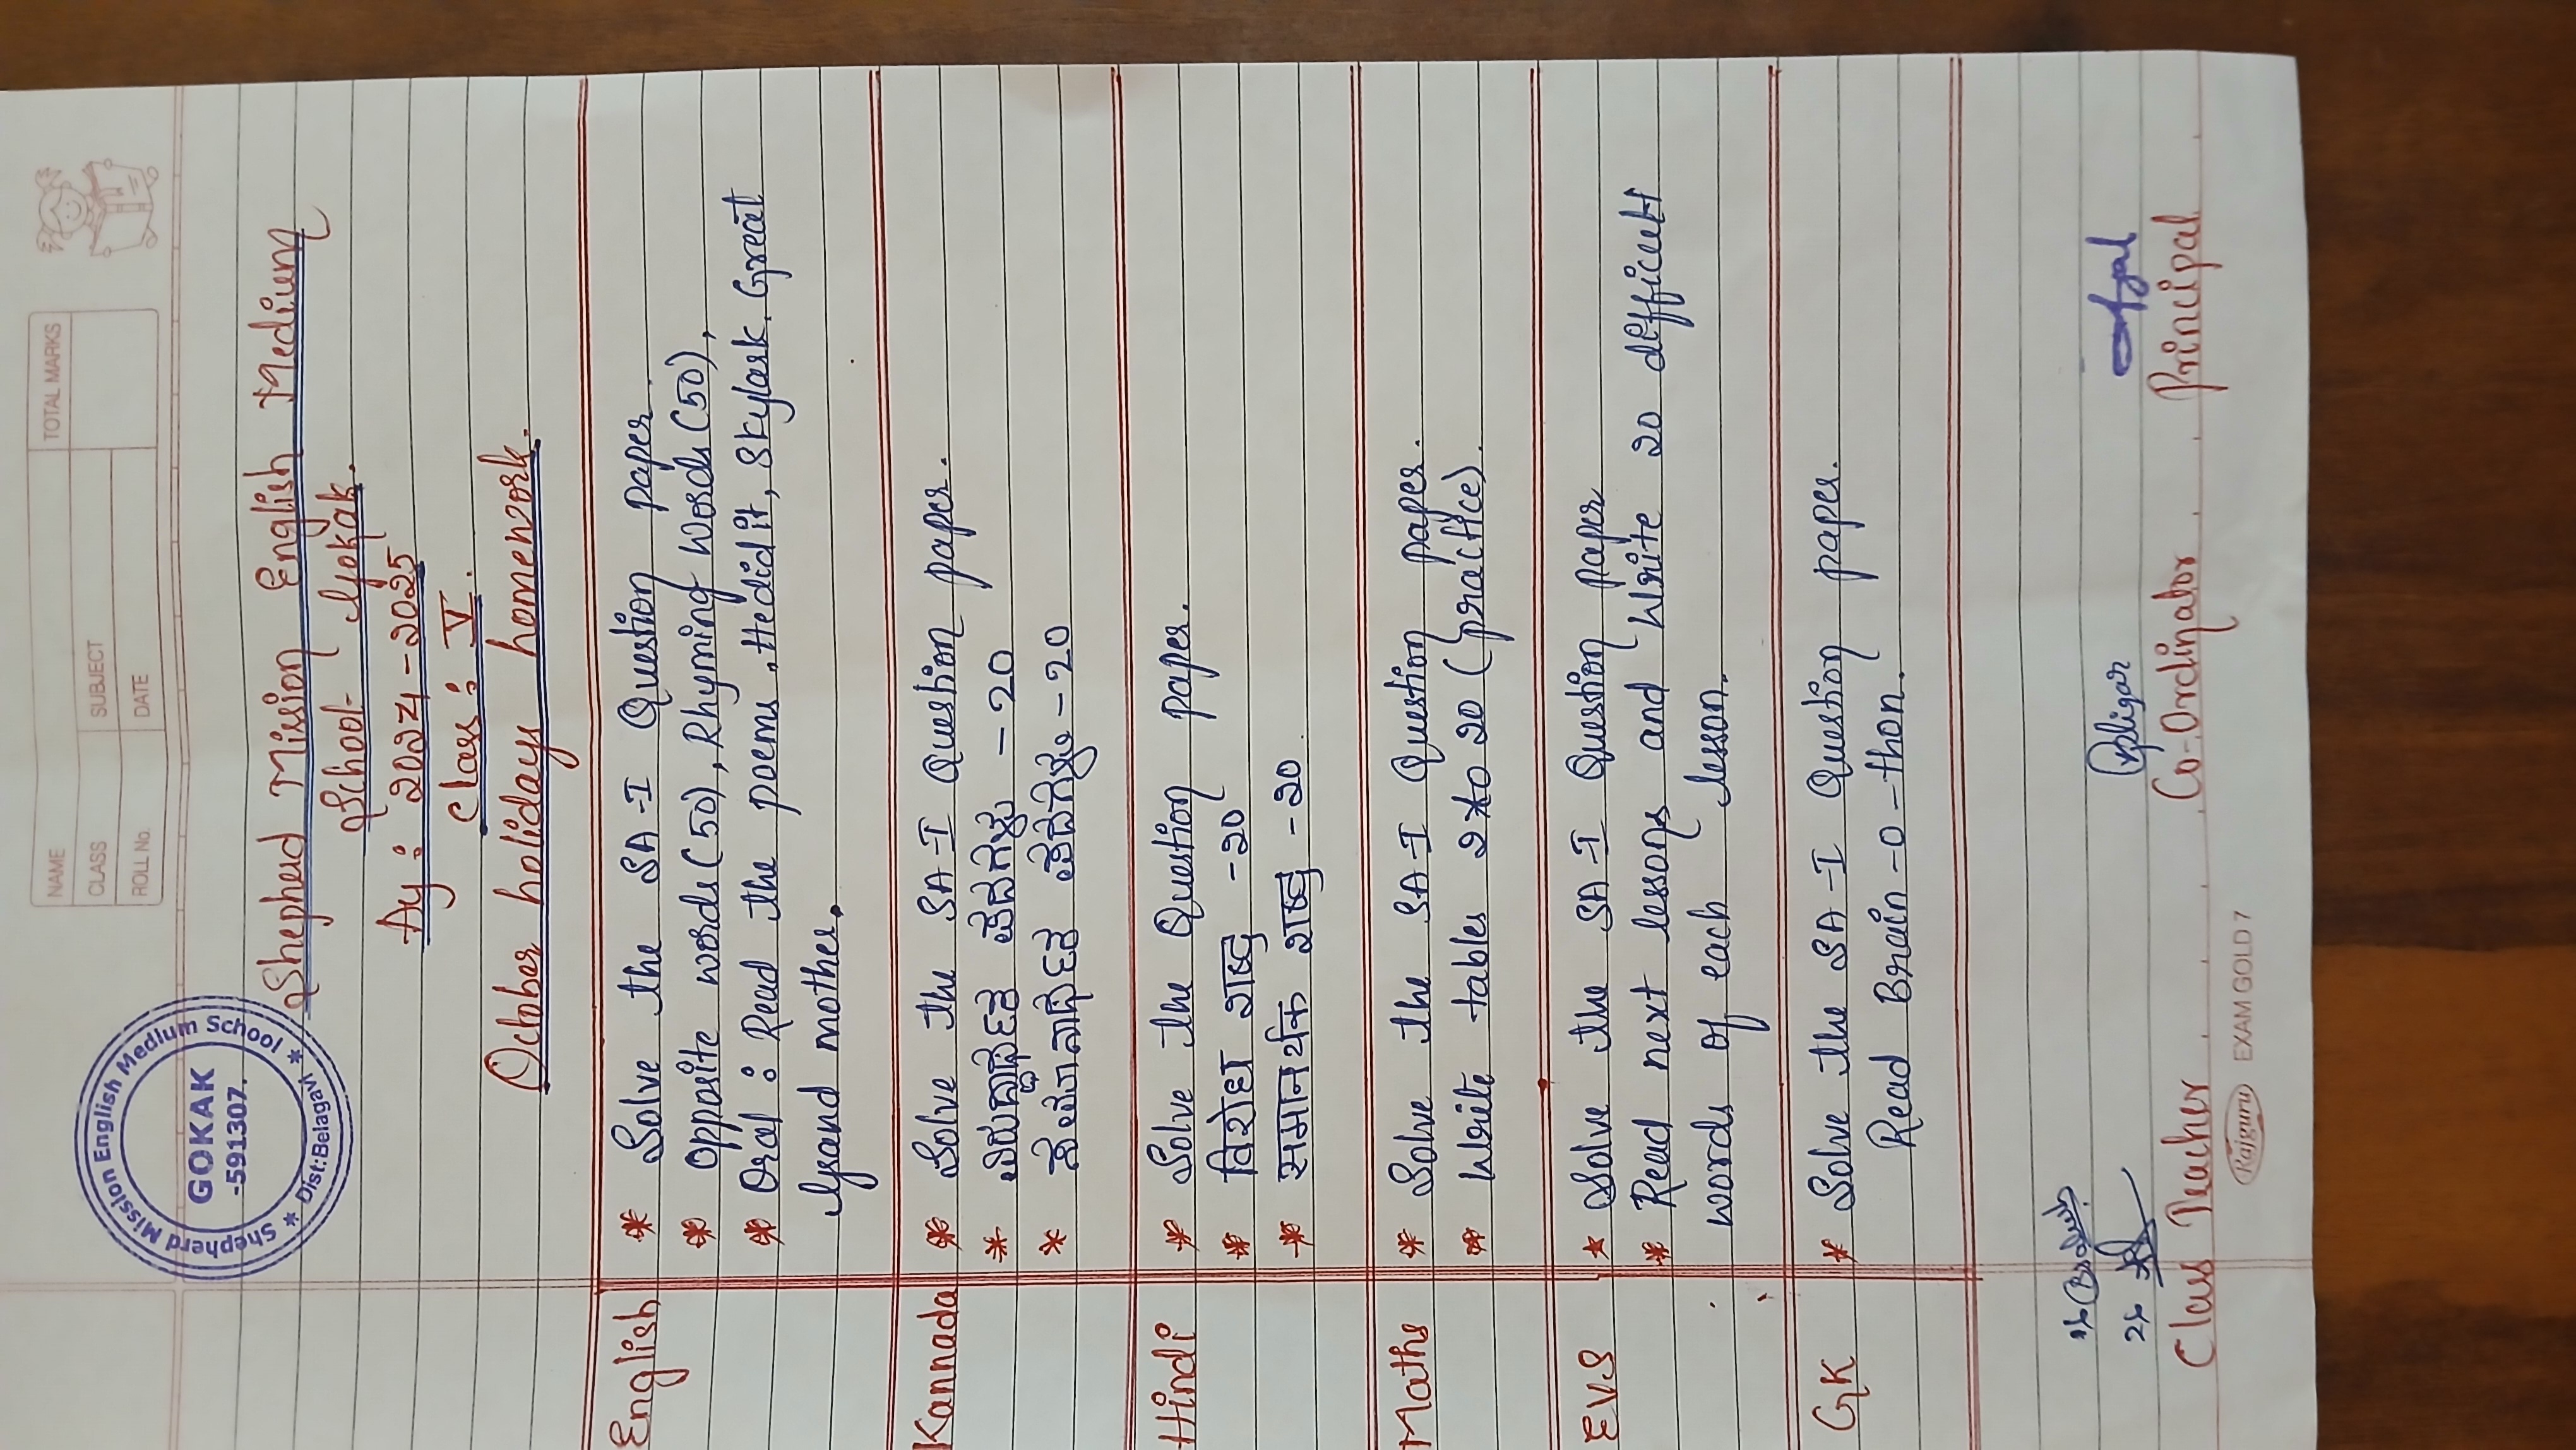 NAME
TOTAL MARKS
CLASS
SUBJECT
ROLL No.
DATE
Shepherd Mission English Medium School
GOKAK
-591307.
* Dist:Belagavi *
Shepherd Mission English Medium
School- Gokak.
Ay : 2024-2025
Class : V.
October holidays homework.
English
* Solve the SA-I Question paper.
* Opposite words(50), Rhyming words(50),
* Oral : Read the poems, He did it, Skylark, Great
Grand mother.
Kannada
* Solve the SA-I Question paper.
* ವಿರುದ್ಧಾರ್ಥಕ ಪದಗಳು -20
* ಸಮಾನಾರ್ಥಕ ಪದಗಳು -20
Hindi
* Solve the Question paper.
* विरोधा शब्द -20
* समानर्थक शब्द -20
Maths
* Solve the SA-I Question paper.
* Write tables 2 to 20 (practice).
EVS
* Solve the SA-I Question paper
* Read next lessons and Write 20 difficult
words of each lesson.
GK
* Solve the SA-I Question paper.
Read Brain-O-thon.
Class Teacher
Co-Ordinator
Principal
Rajguru EXAM GOLD 7